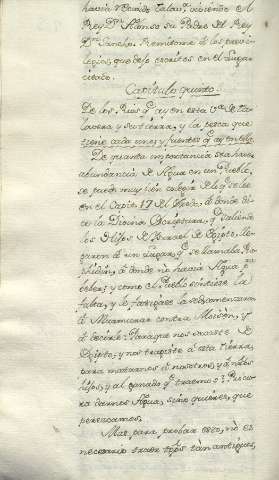 havia
Rey Dn. Alonso su Padre del Rey
Dn. Sancho. Remitome a los previ-
legios, que dejo escritos en el lugar
citado.
Capitulo quinto.
De los Rios q ay en esta Va. de Ta-
lavera, y su tierra, y la pesca que
tiene cada uno, y fuentes q ay en ella.
De quanta importancia sea haver
abundancia de Agua en un Pueblo,
se puede muy bien colegir de lo q se lee
en el Capit. 17 del Exodo, a donde di-
ce la Divina Escriptura, q saliendo
los Hijos de Israel de Egipto, lle-
garon a un lugar, q se llamaba Ra-
phidin, a donde no havia Agua pa.
beber, y como el Pueblo sintiese la
falta, y le fatigase la sed, comenzaron
a Murmurar contra Moisen, y
a decirle: Para que nos sacaste de
Egipto, y nos trajiste a esta tierra,
para matarnos a nosotros, y a ntros.
hijos, y al ganado q traemos? Procu-
ra darnos Agua, sino quieres, que
perezcamos.
Mas para probar esto, no es
necesario traer tan antiguos,